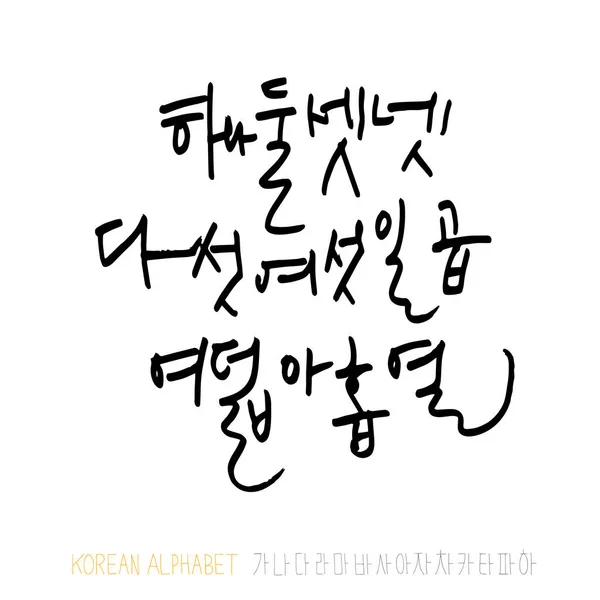 하나둘셋넷
다섯여섯일곱
여덟아홉열
KOREAN ALPHABET 가나다라마바사아자차카타파하